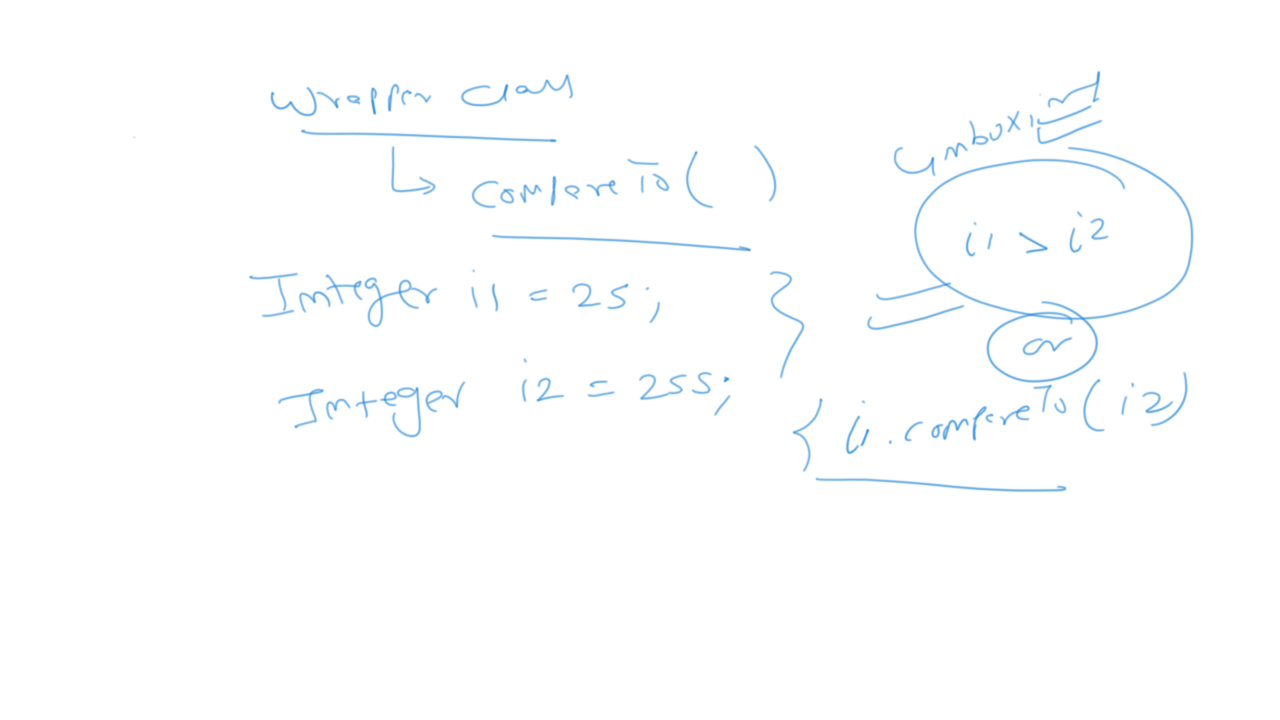 Wrapper Class
compareTo( )
Integer i1 = 25;
Integer i2 = 255;
unboxing
i1 > i2
or
i1.compareTo(i2)